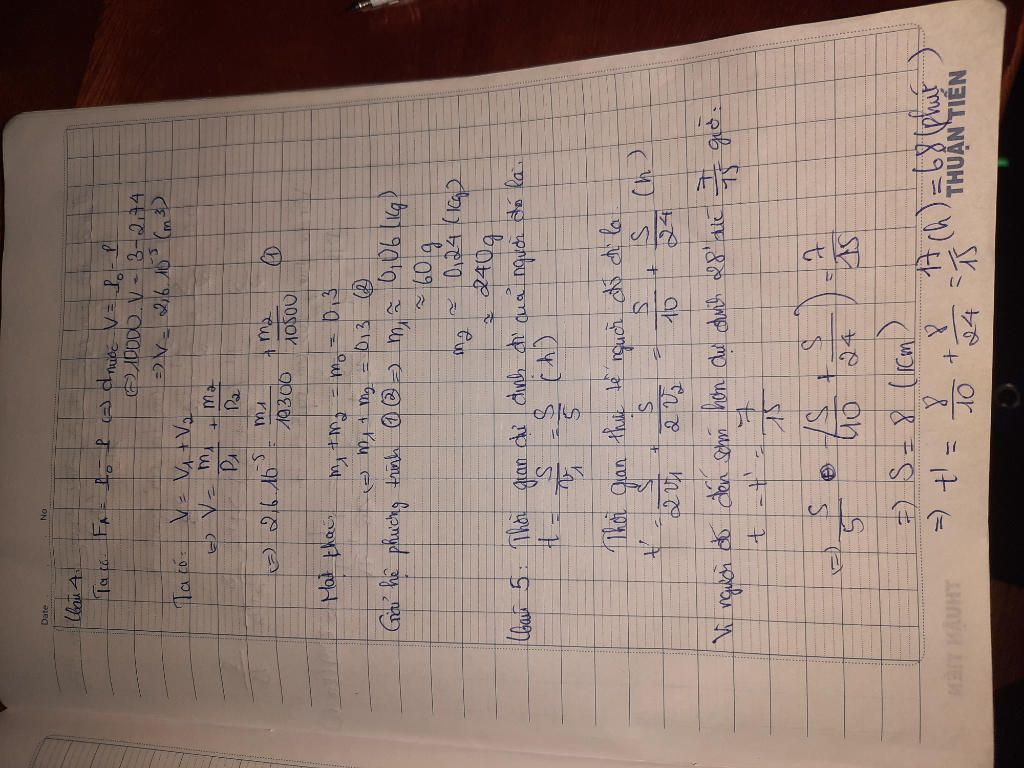 Date No
Câu 4:
Ta có: FA = P0 - P (=) dnước V = P0 - P
(=) 10000. V = 3 - 2,74
=) V = 2,6.10⁻⁵ (m3)
Ta có: V = V1 + V2
=) V = m1/D1 + m2/D2
(=) 2,6.10⁻⁵ = m1/19300 + m2/10500 (1)
Mặt khác: m1 + m2 = m0 = 0,3
(=) m1 + m2 = 0,3 (2)
Giải hệ phương trình (1) (2) =) m1 ≈ 0,06 (kg)
≈ 60 g
m2 ≈ 0,24 (kg)
≈ 240 g
Câu 5: Thời gian dự định đi của người đó là:
t = S/v1 = S/5 (h)
Thời gian thực tế người đó đi là
t' = S/2v1 + S/2v2 = S/10 + S/24 (h)
Vì người đó đến sớm hơn dự định 28' tức 7/15 giờ:
t - t' = 7/15
(=) S/5 - (S/10 + S/24) = 7/15
=) S = 8 (km)
=) t' = 8/10 + 8/24 = 17/15 (h) = 68 (phút)
THUẬN TIẾN